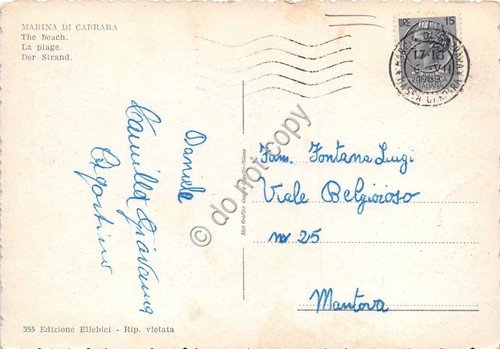 MARINA DI CARRARA
The beach.
La plage.
Der Strand.
LIRE 15
Daniele
Camilla Giovanna
Agostino
Fam. Fontana Luigi
Viale Belgioioso
nr 25
Mantova
do not copy
355 Edizione Ellebici - Rip. vietata